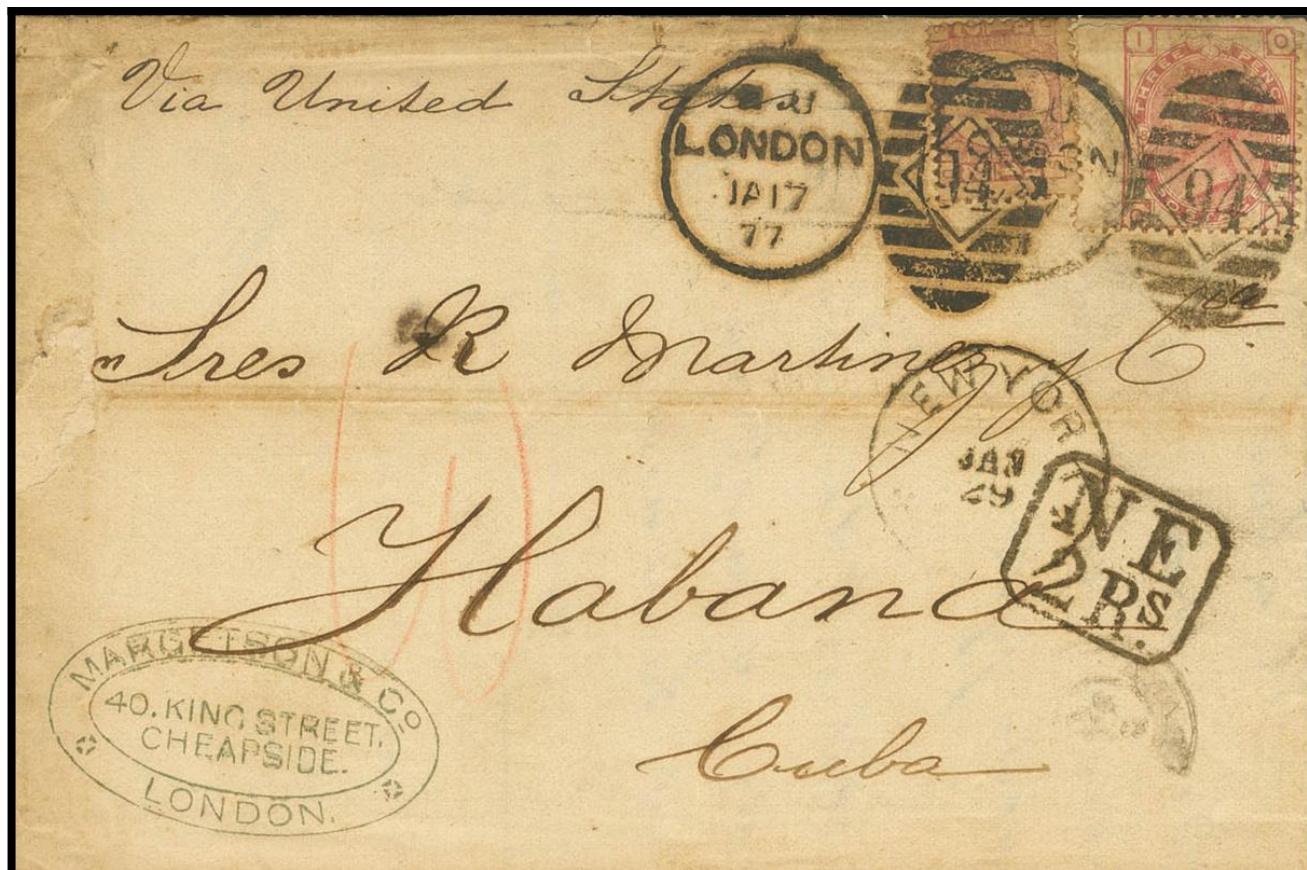 Via United States
LONDON
JA 17
77
94
94
I O
THREE PENCE
Sres R Martinez y Ca
NEW YOR
JAN
29
NE
2 Rs.
Habana
Cuba
MARGETSON & Co
40. KING STREET.
CHEAPSIDE.
LONDON.